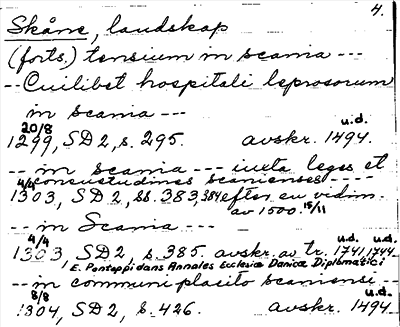 4.
Skåne, landskap
(forts.) tensium in scania ---
-- Cuilibet hospitali leprosorum
in scania ---
20/8 u.d.
1299, SD2, s. 295. avskr. 1494.
-- in scania --- iuxta leges et
4/4 consvetudines scanienses ----
1303, SD2, ss. 383, 384 efter en vidim.
av 1500 15/11
-- in Scania ---
4/4 u.d. u.d.
1303, SD2, s. 385. avskr. av tr. 1741, 1744
E. Pontoppidans Annales Ecclesiæ Danicæ Diplomatici
-- in communi placito scaniensi --
8/8 u.d.
1304, SD2, s. 426. avskr. 1494